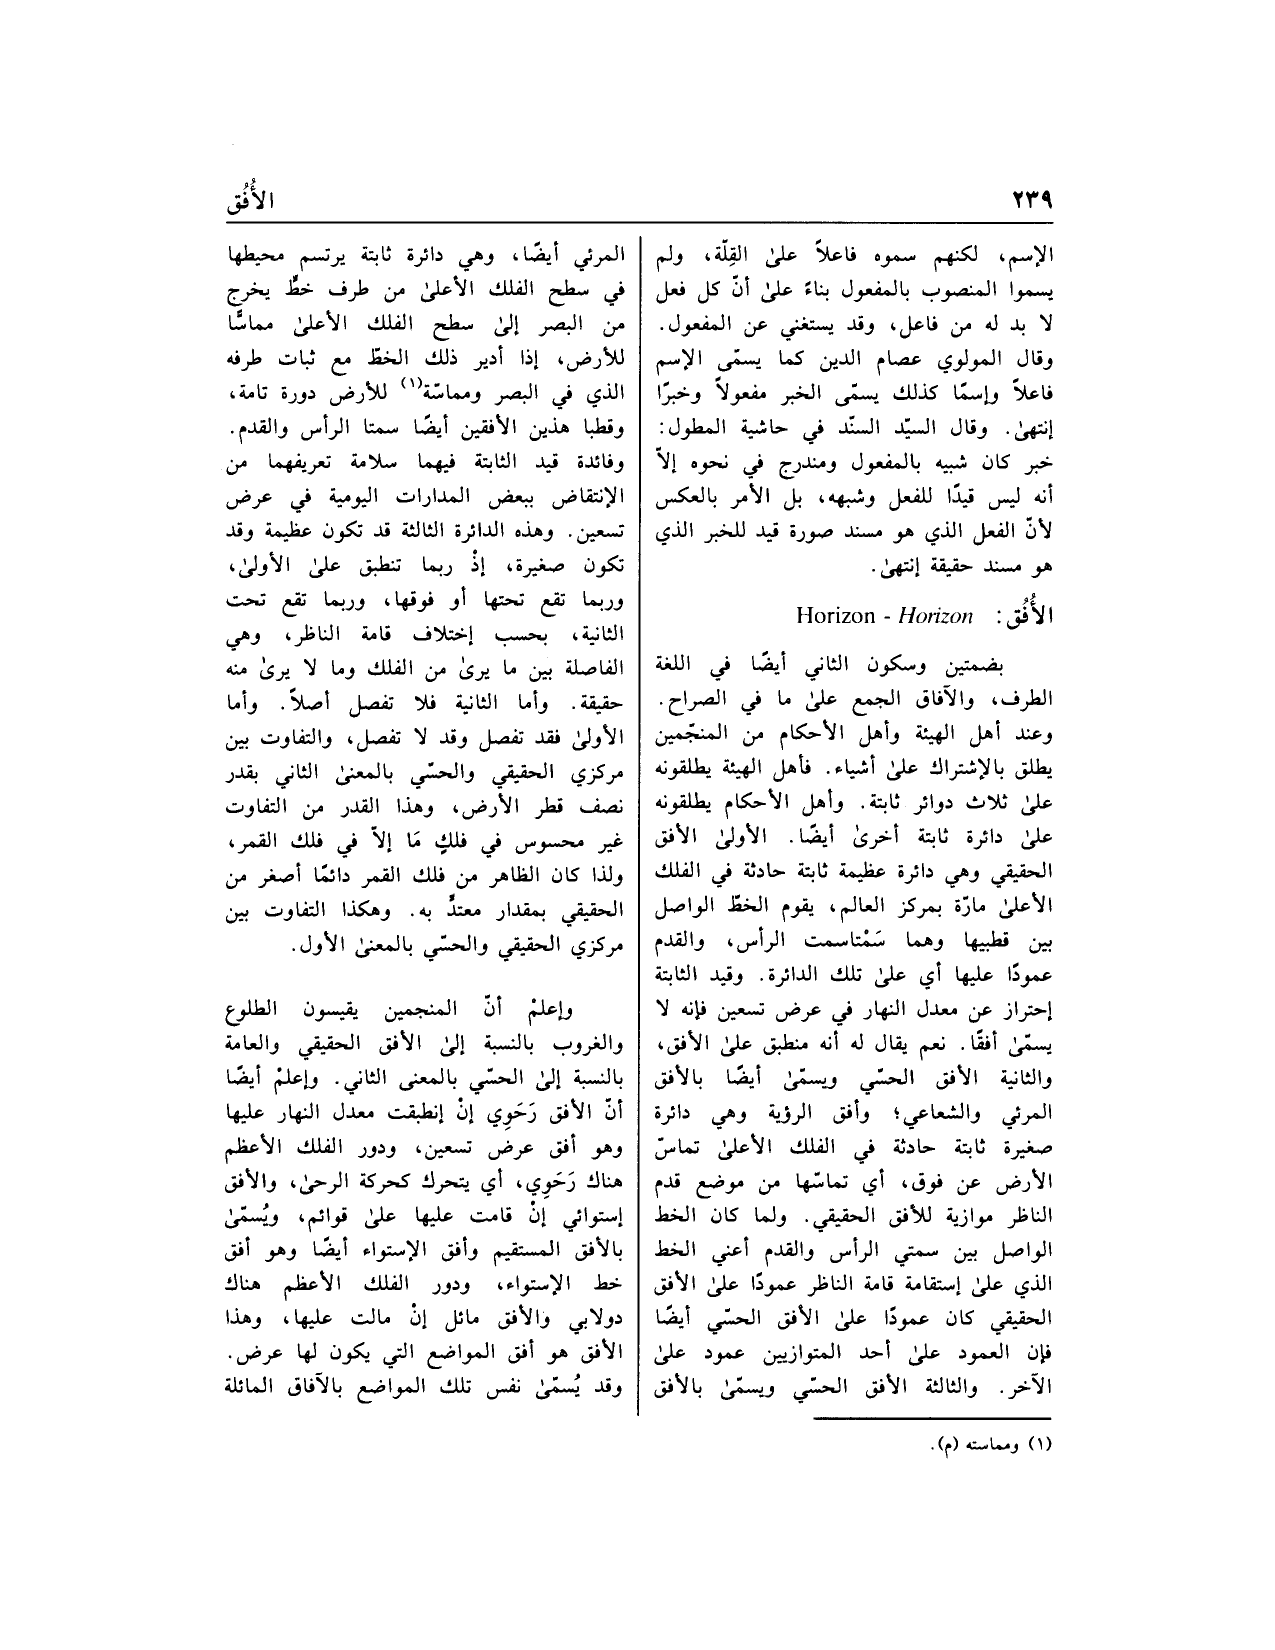 ٢٣٩
الأُفُق
الإسم، لكنهم سموه فاعلاً على القِلّة، ولم
يسموا المنصوب بالمفعول بناءً على أنّ كل فعل
لا بد له من فاعل، وقد يستغني عن المفعول.
وقال المولوي عصام الدين كما يسمّى الإسم
فاعلاً وإسمًا كذلك يسمّى الخبر مفعولاً وخبرًا
إنتهىٰ. وقال السيّد السنّد في حاشية المطول:
خبر كان شبيه بالمفعول ومندرج في نحوه إلاّ
أنه ليس قيدًا للفعل وشبهه، بل الأمر بالعكس
لأنّ الفعل الذي هو مسند صورة قيد للخبر الذي
هو مسند حقيقة إنتهىٰ.
الأُفُق: Horizon - Horizon
بضمتين وسكون الثاني أيضًا في اللغة
الطرف، والآفاق الجمع علىٰ ما في الصراح.
وعند أهل الهيئة وأهل الأحكام من المنجّمين
يطلق بالإشتراك علىٰ أشياء. فأهل الهيئة يطلقونه
علىٰ ثلاث دوائر ثابتة. وأهل الأحكام يطلقونه
علىٰ دائرة ثابتة أخرىٰ أيضًا. الأولىٰ الأفق
الحقيقي وهي دائرة عظيمة ثابتة حادثة في الفلك
الأعلىٰ مارّة بمركز العالم، يقوم الخطّ الواصل
بين قطبيها وهما سَمْتاسمت الرأس، والقدم
عمودًا عليها أي علىٰ تلك الدائرة. وقيد الثابتة
إحتراز عن معدل النهار في عرض تسعين فإنه لا
يسمّىٰ أفقًا. نعم يقال له أنه منطبق علىٰ الأفق،
والثانية الأفق الحسّي ويسمّىٰ أيضًا بالأفق
المرئي والشعاعي؛ وأفق الرؤية وهي دائرة
صغيرة ثابتة حادثة في الفلك الأعلىٰ تماسّ
الأرض عن فوق، أي تماسّها من موضع قدم
الناظر موازية للأفق الحقيقي. ولما كان الخط
الواصل بين سمتي الرأس والقدم أعني الخط
الذي علىٰ إستقامة قامة الناظر عمودًا علىٰ الأفق
الحقيقي كان عمودًا علىٰ الأفق الحسّي أيضًا
فإن العمود علىٰ أحد المتوازيين عمود علىٰ
الآخر. والثالثة الأفق الحسّي ويسمّىٰ بالأفق
المرئي أيضًا، وهي دائرة ثابتة يرتسم محيطها
في سطح الفلك الأعلىٰ من طرف خطٍّ يخرج
من البصر إلىٰ سطح الفلك الأعلىٰ مماسًّا
للأرض، إذا أدير ذلك الخطّ مع ثبات طرفه
الذي في البصر ومماسّة(١) للأرض دورة تامة،
وقطبا هذين الأفقين أيضًا سمتا الرأس والقدم.
وفائدة قيد الثابتة فيهما سلامة تعريفهما من
الإنتقاض ببعض المدارات اليومية في عرض
تسعين. وهذه الدائرة الثالثة قد تكون عظيمة وقد
تكون صغيرة، إذْ ربما تنطبق علىٰ الأولىٰ،
وربما تقع تحتها أو فوقها، وربما تقع تحت
الثانية، بحسب إختلاف قامة الناظر، وهي
الفاصلة بين ما يرىٰ من الفلك وما لا يرىٰ منه
حقيقة. وأما الثانية فلا تفصل أصلاً. وأما
الأولىٰ فقد تفصل وقد لا تفصل، والتفاوت بين
مركزي الحقيقي والحسّي بالمعنىٰ الثاني بقدر
نصف قطر الأرض، وهذا القدر من التفاوت
غير محسوس في فلكٍ مَا إلاّ في فلك القمر،
ولذا كان الظاهر من فلك القمر دائمًا أصغر من
الحقيقي بمقدار معتدٍّ به. وهكذا التفاوت بين
مركزي الحقيقي والحسّي بالمعنىٰ الأول.
وإعلمْ أنّ المنجمين يقيسون الطلوع
والغروب بالنسبة إلىٰ الأفق الحقيقي والعامة
بالنسبة إلىٰ الحسّي بالمعنى الثاني. وإعلمْ أيضًا
أنّ الأفق رَحَوِي إنْ إنطبقت معدل النهار عليها
وهو أفق عرض تسعين، ودور الفلك الأعظم
هناك رَحَوِي، أي يتحرك كحركة الرحىٰ، والأفق
إستوائي إنْ قامت عليها علىٰ قوائم، ويُسمّىٰ
بالأفق المستقيم وأفق الإستواء أيضًا وهو أفق
خط الإستواء، ودور الفلك الأعظم هناك
دولابي والأفق مائل إنْ مالت عليها، وهذا
الأفق هو أفق المواضع التي يكون لها عرض.
وقد يُسمّىٰ نفس تلك المواضع بالآفاق المائلة
(١) ومماسته (م).